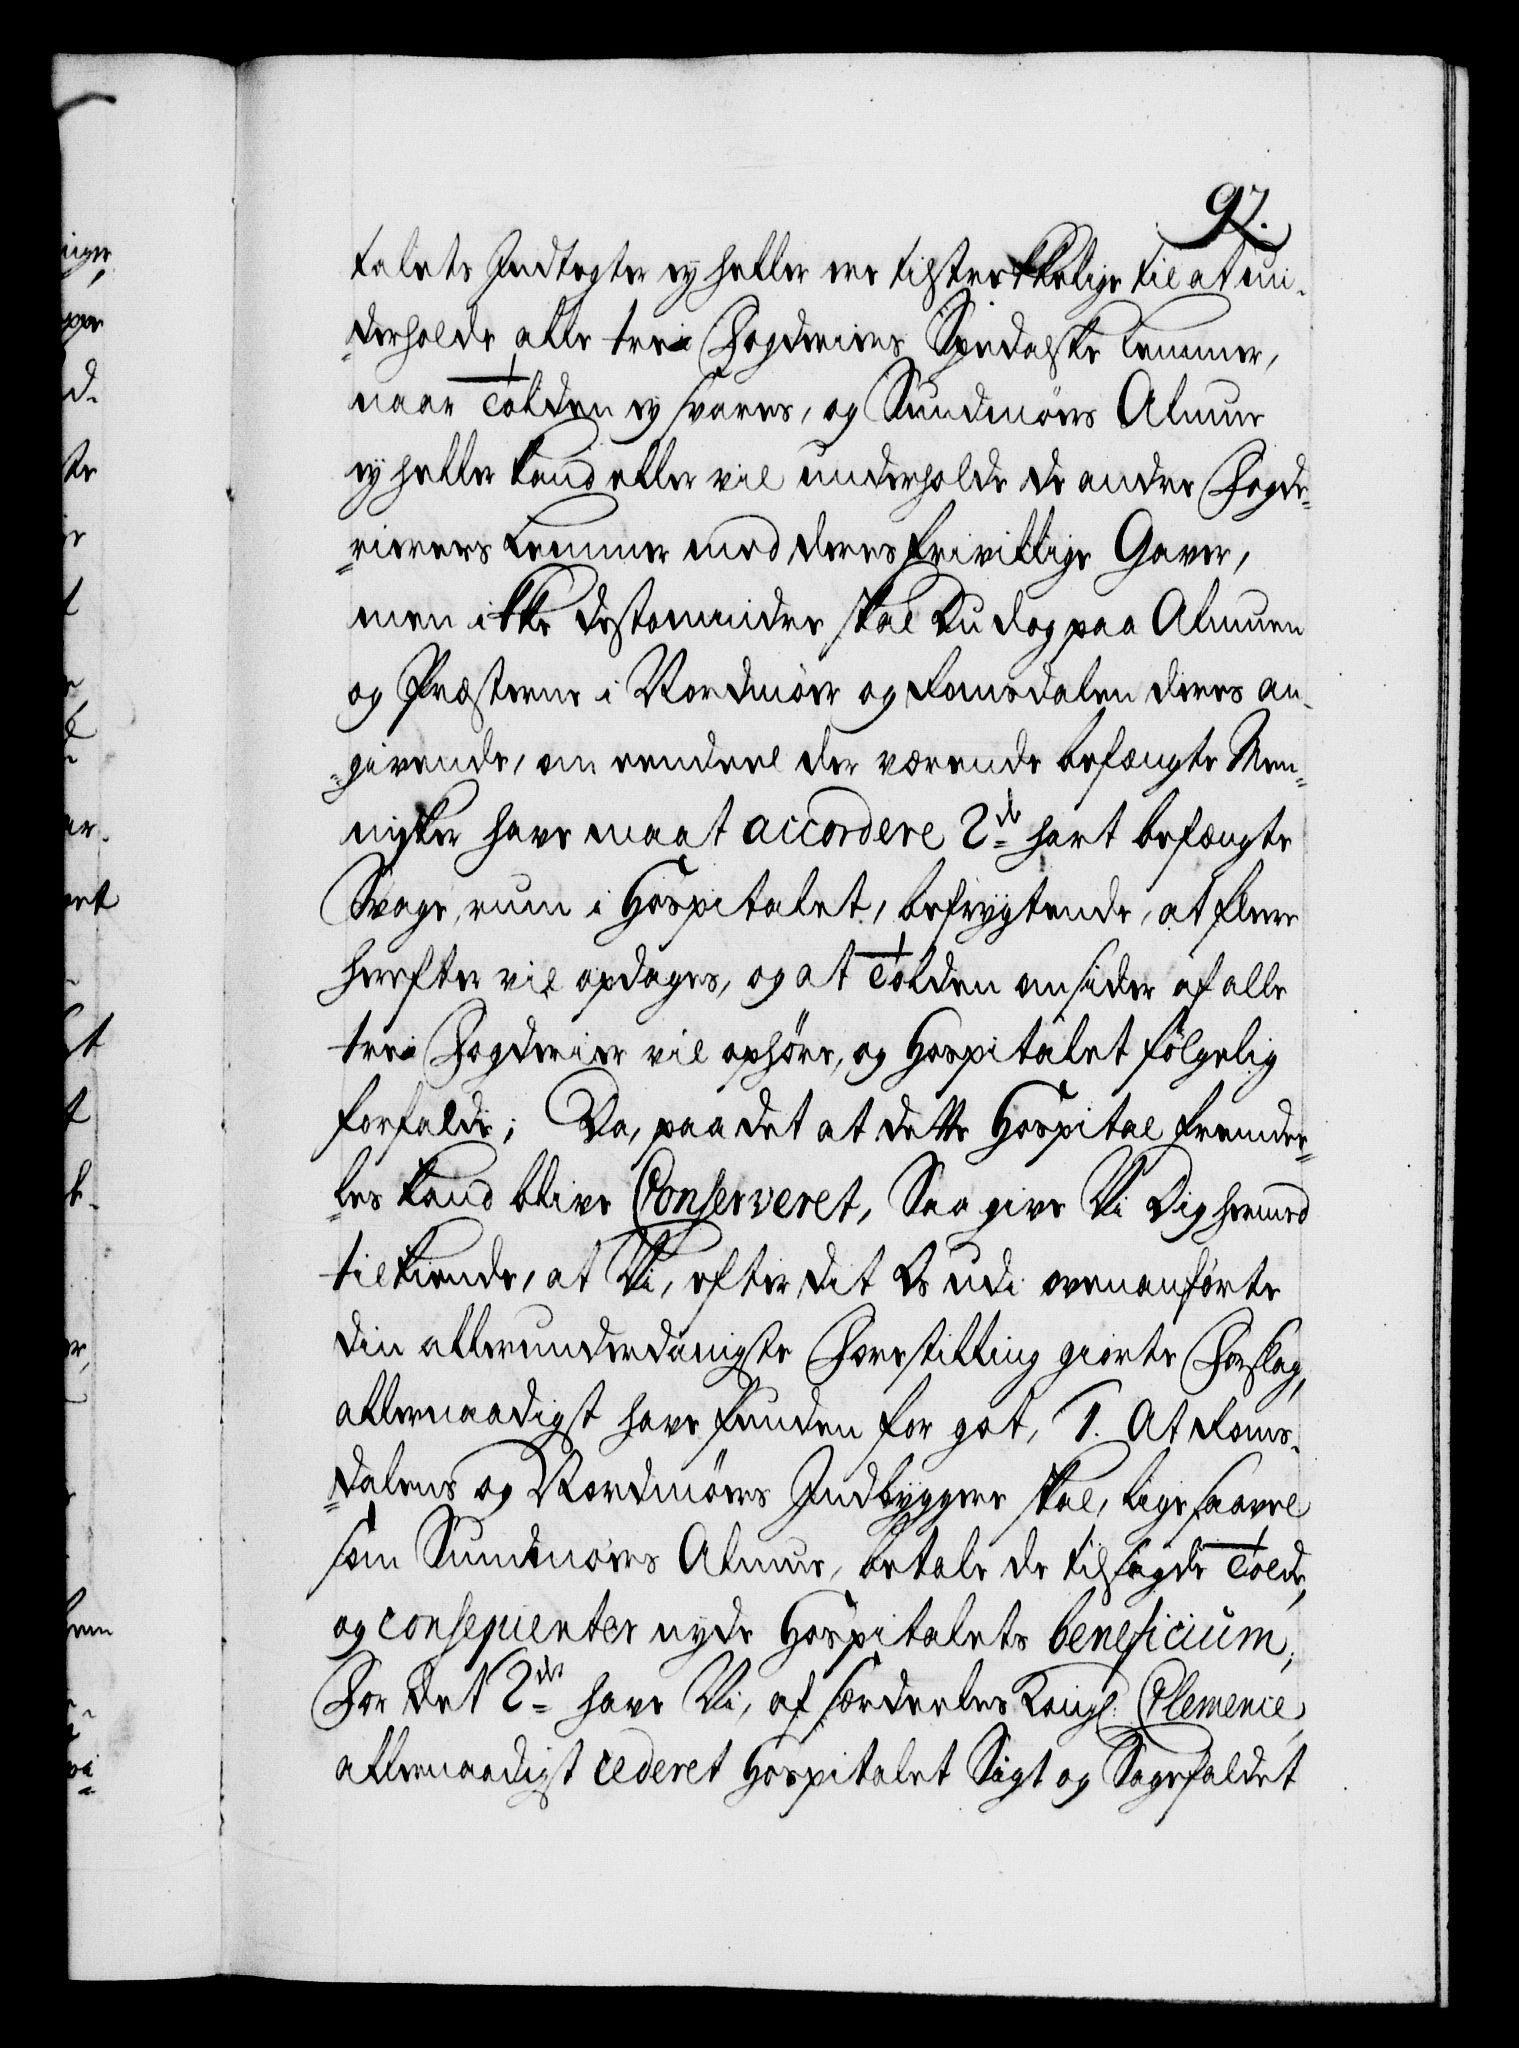 97.
talets Indtegter ey heller ere tilstrekkelige til at un-
derholde alle trei Fogderiers Spedalske Lemmer,
naar Tolden ey svares, og Sundmörs Almue
ey heller kand eller vil underholde de andre Fogde-
rierers Lemmer med deres frivillige Gaver,
men ikke destomindre skal Du dog paa Almuen
og Præsterne i Nordmör og Romsdalen deres an-
givende, om eendeel der værende befængte Men-
nisker have maat accordere 2de hart befængte
Svage, rum i Hospitalet, befrygtende, at flere
herefter vil opdages, og at Tolden omsider af alle
trei Fogderier vil ophöre, og Hospitalet fölgelig
forfalde; Da, paa det at dette Hospital fremde-
les kand blive Conserveret, Saa give Vi Dig hermed
tilkiende, at Vi, efter dit Os udi ovenanförte
din allerunderdanigste Forestilling giorte Forslag,
allernaadigst have funden for got, 1. At Roms-
dalens og Nordmörs Indbyggere skal, lige saavel
som Sundmörs Almue, betale de tilsagde Tolde,
og consequenter nyde Hospitalets beneficium;
For det 2det have Vi, af særdeeles Kongl. Clemence,
allernaadigst cederet Hospitalet Sigt og Sagefaldet